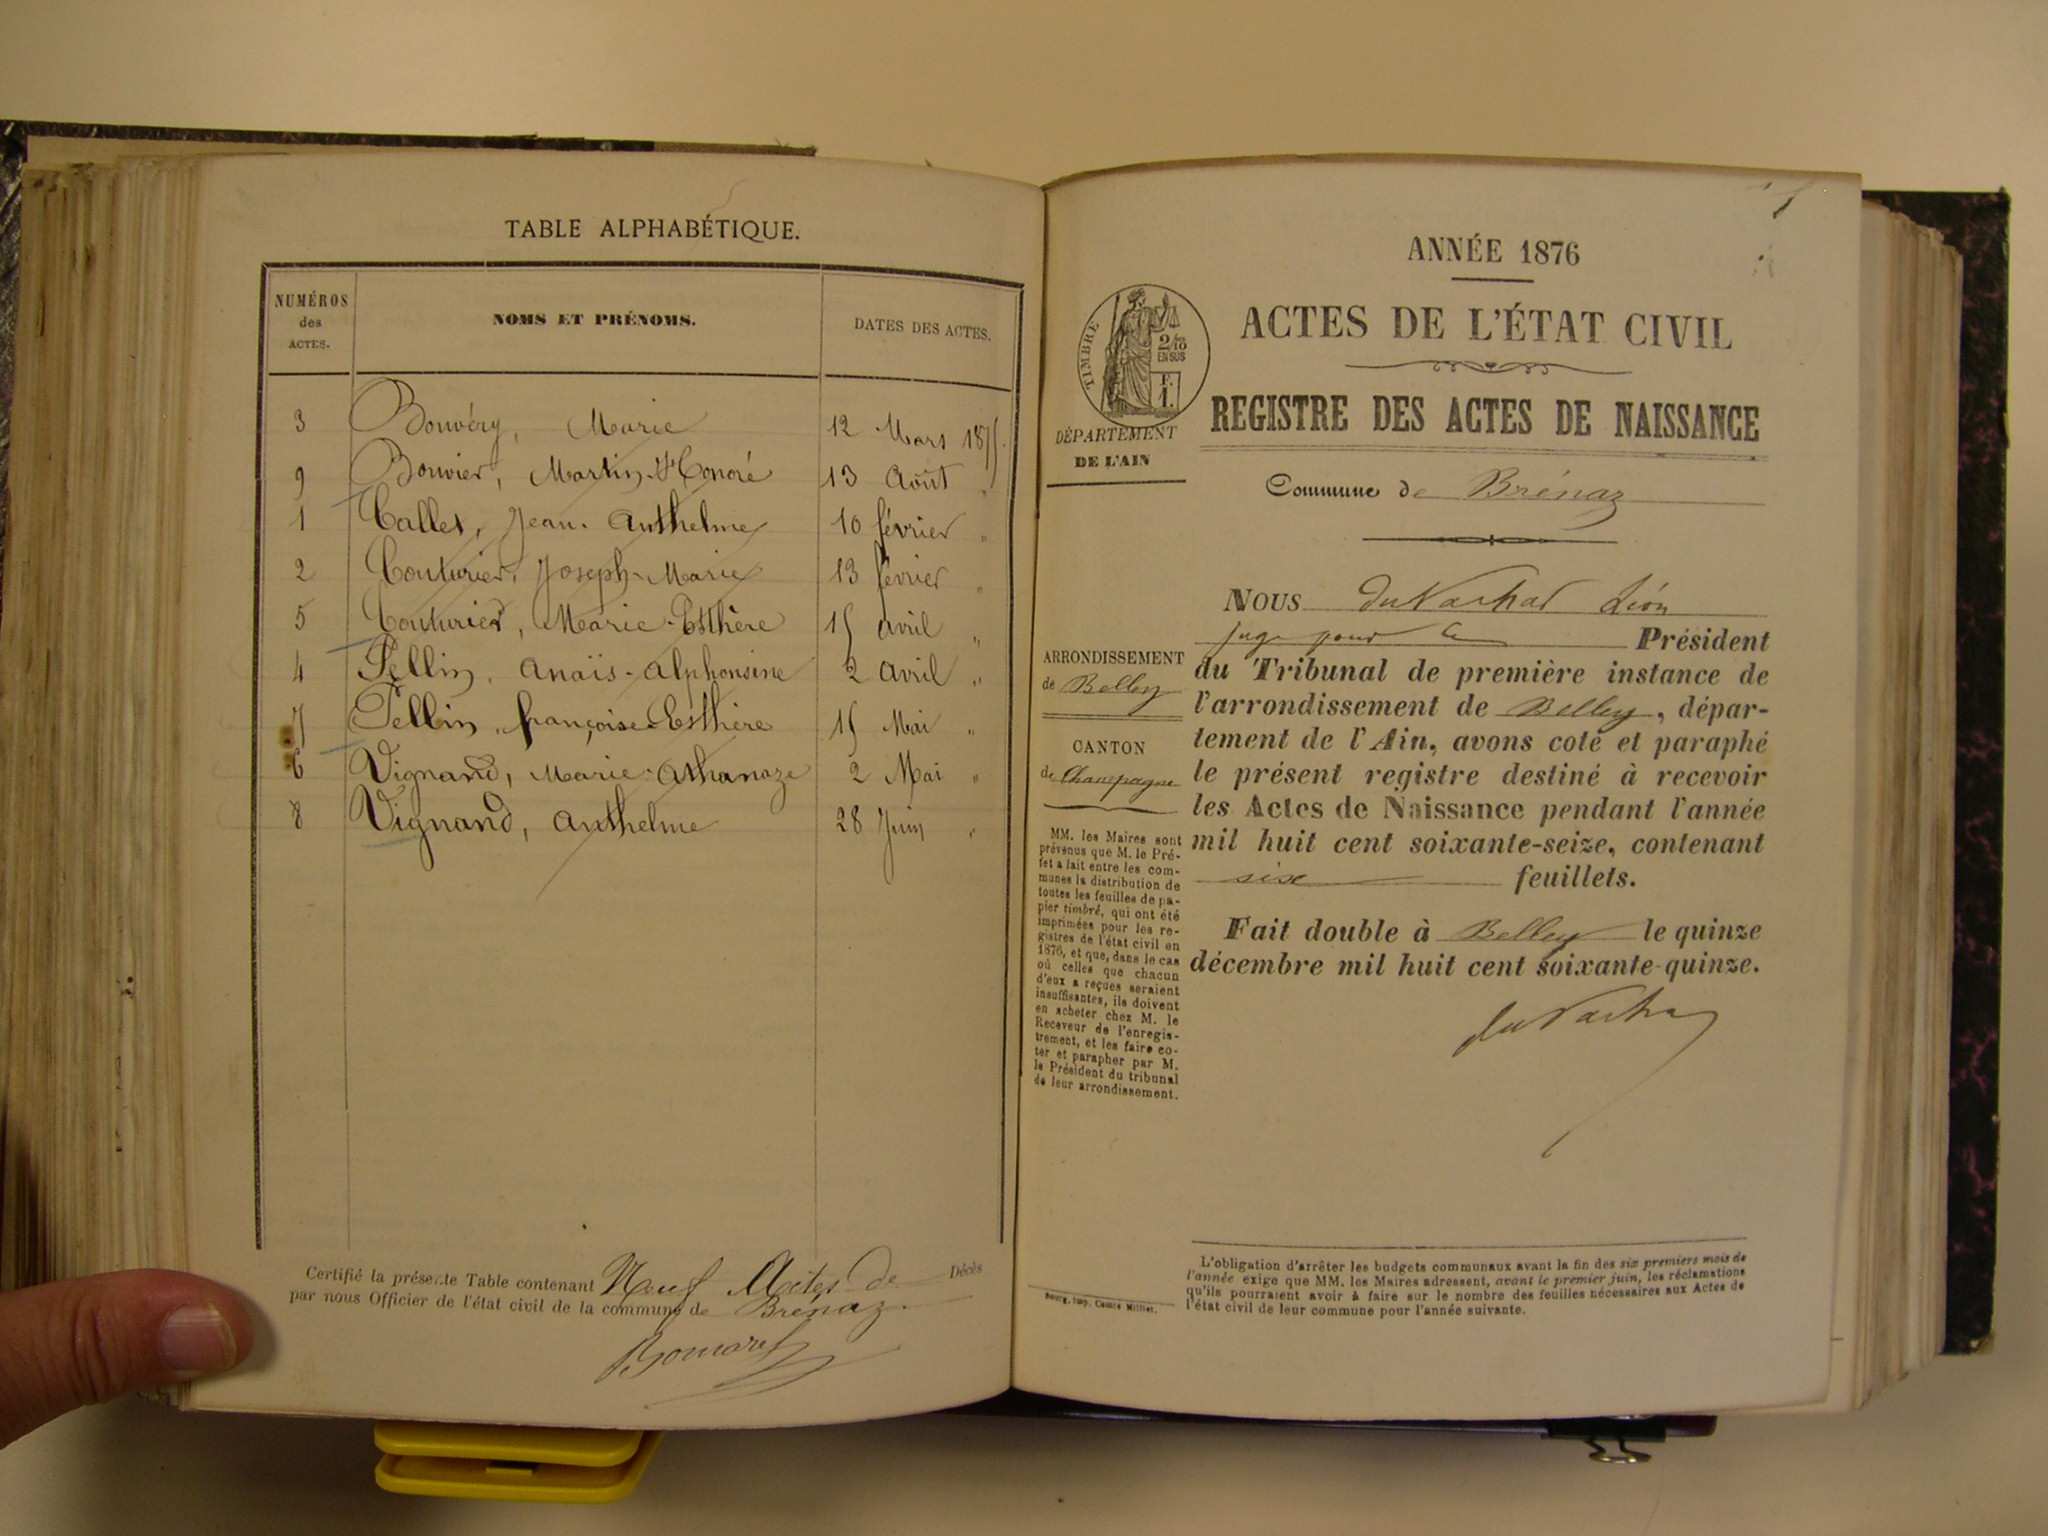 TABLE ALPHABÉTIQUE.
NUMÉROS des ACTES. NOMS ET PRÉNOMS. DATES DES ACTES.
3 Bouvéry, Marie 12 Mars 1875.
9 Bouvier, Martin-Honoré 13 Août "
1 Callet, Jean-Anthelme 10 février "
2 Couturier, Joseph-Marie 13 février "
5 Couturier, Marie-Esthère 15 avril "
4 Pellin, Anaïs-Alphonsine 2 avril "
7 Pellin, françoise-Esthère 15 Mai "
6 Vignand, Marie-Athanaze 2 Mai "
8 Vignand, Anthelme 28 Juin "
Certifié la présente Table contenant Neuf Actes de Décès
par nous Officier de l'état civil de la commune de Brénaz.
ANNÉE 1876
ACTES DE L'ÉTAT CIVIL
REGISTRE DES ACTES DE NAISSANCE
TIMBRE
2/10
EN SUS
F.
1.
DÉPARTEMENT
DE L'AIN
Commune de Brénaz
ARRONDISSEMENT
de Belley
CANTON
de Champagne
MM. les Maires sont
prévenus que M. le Pré-
fet a fait entre les com-
munes la distribution de
toutes les feuilles de pa-
pier timbré, qui ont été
imprimées pour les re-
gistres de l'état civil en
1876, et que, dans le cas
où celles que chacun
d'eux a reçues seraient
insuffisantes, ils doivent
en acheter chez M. le
Receveur de l'enregis-
trement, et les faire co-
ter et parapher par M.
le Président du tribunal
de leur arrondissement.
NOUS du Nachat Léon
juge pour le Président
du Tribunal de première instance de
l'arrondissement de Belley, dépar-
tement de l'Ain, avons coté et paraphé
le présent registre destiné à recevoir
les Actes de Naissance pendant l'année
mil huit cent soixante-seize, contenant
six feuillets.
Fait double à Belley le quinze
décembre mil huit cent soixante-quinze.
Bourg, imp. Comte Milliet.
L'obligation d'arrêter les budgets communaux avant la fin des six premiers mois de
l'année exige que MM. les Maires adressent, avant le premier juin, les réclamations
qu'ils pourraient avoir à faire sur le nombre des feuilles nécessaires aux Actes de
l'état civil de leur commune pour l'année suivante.